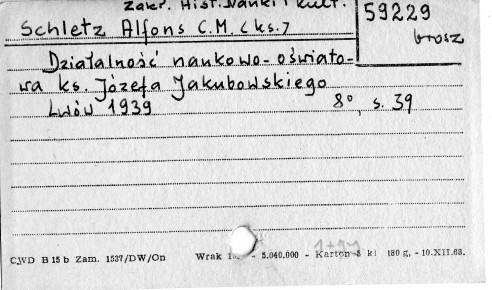 Zakł. Hist. Nauki i Kult.
59229
brosz
Schletz Alfons C.M. (ks.)
Działalność naukowo-oświato-
wa ks. Józefa Jakubowskiego
Lwów 1939 8°, s. 39
CWD B 15 b Zam. 1537/DW/On Wrak - 5.040.000 - Karton 8 kl 180 g, - 10.XII.63.